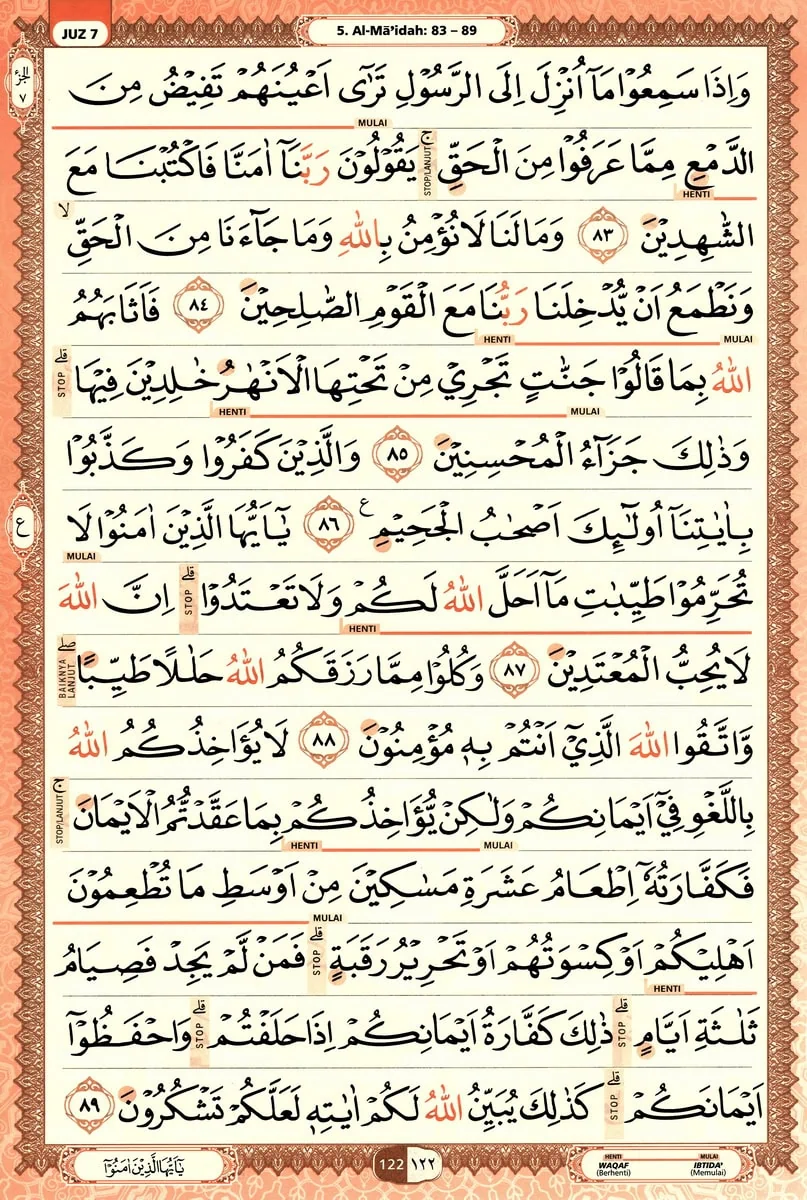 JUZ 7
5. Al-Mā’idah: 83 – 89
الجزء ٧
وَاِذَا سَمِعُوْا مَآ اُنْزِلَ اِلَى الرَّسُوْلِ تَرٰٓى اَعْيُنَهُمْ تَفِيْضُ مِنَ
MULAI
الدَّمْعِ مِمَّا عَرَفُوْا مِنَ الْحَقِّۚ STOP/LANJUT يَقُوْلُوْنَ رَبَّنَآ اٰمَنَّا فَاكْتُبْنَا مَعَ
HENTI
الشّٰهِدِيْنَ ٨٣ وَمَا لَنَا لَا نُؤْمِنُ بِاللّٰهِ وَمَا جَآءَنَا مِنَ الْحَقِّۙ
وَنَطْمَعُ اَنْ يُّدْخِلَنَا رَبُّنَا مَعَ الْقَوْمِ الصّٰلِحِيْنَ ٨٤ فَاَثَابَهُمُ
MULAI HENTI
اللّٰهُ بِمَا قَالُوْا جَنّٰتٍ تَجْرِيْ مِنْ تَحْتِهَا الْاَنْهٰرُ خٰلِدِيْنَ فِيْهَاۗ STOP
MULAI HENTI
وَذٰلِكَ جَزَآءُ الْمُحْسِنِيْنَ ٨٥ وَالَّذِيْنَ كَفَرُوْا وَكَذَّبُوْا
بِاٰيٰتِنَآ اُولٰۤىِٕكَ اَصْحٰبُ الْجَحِيْمِ ع ٨٦ يٰٓاَيُّهَا الَّذِيْنَ اٰمَنُوْا لَا
ع
MULAI
تُحَرِّمُوْا طَيِّبٰتِ مَآ اَحَلَّ اللّٰهُ لَكُمْ وَلَا تَعْتَدُوْاۗ STOP اِنَّ اللّٰهَ
HENTI
لَا يُحِبُّ الْمُعْتَدِيْنَ ٨٧ وَكُلُوْا مِمَّا رَزَقَكُمُ اللّٰهُ حَلٰلًا طَيِّبًاۖ BAIKNYA LANJUT
وَّاتَّقُوا اللّٰهَ الَّذِيْٓ اَنْتُمْ بِهٖ مُؤْمِنُوْنَ ٨٨ لَا يُؤَاخِذُكُمُ اللّٰهُ
بِاللَّغْوِ فِيْٓ اَيْمَانِكُمْ وَلٰكِنْ يُّؤَاخِذُكُمْ بِمَا عَقَّدْتُّمُ الْاَيْمَانَۚ STOP/LANJUT
MULAI HENTI
فَكَفَّارَتُهٗٓ اِطْعَامُ عَشَرَةِ مَسٰكِيْنَ مِنْ اَوْسَطِ مَا تُطْعِمُوْنَ
MULAI
اَهْلِيْكُمْ اَوْ كِسْوَتُهُمْ اَوْ تَحْرِيْرُ رَقَبَةٍۗ STOP فَمَنْ لَّمْ يَجِدْ فَصِيَامُ
HENTI
ثَلٰثَةِ اَيَّامٍۗ STOP ذٰلِكَ كَفَّارَةُ اَيْمَانِكُمْ اِذَا حَلَفْتُمْۗ STOP وَاحْفَظُوْٓا
اَيْمَانَكُمْۗ STOP كَذٰلِكَ يُبَيِّنُ اللّٰهُ لَكُمْ اٰيٰتِهٖ لَعَلَّكُمْ تَشْكُرُوْنَ ٨٩
يٰٓاَيُّهَا الَّذِيْنَ اٰمَنُوْا
122 ١٢٢
HENTI MULAI
WAQAF IBTIDA'
(Berhenti) (Memulai)